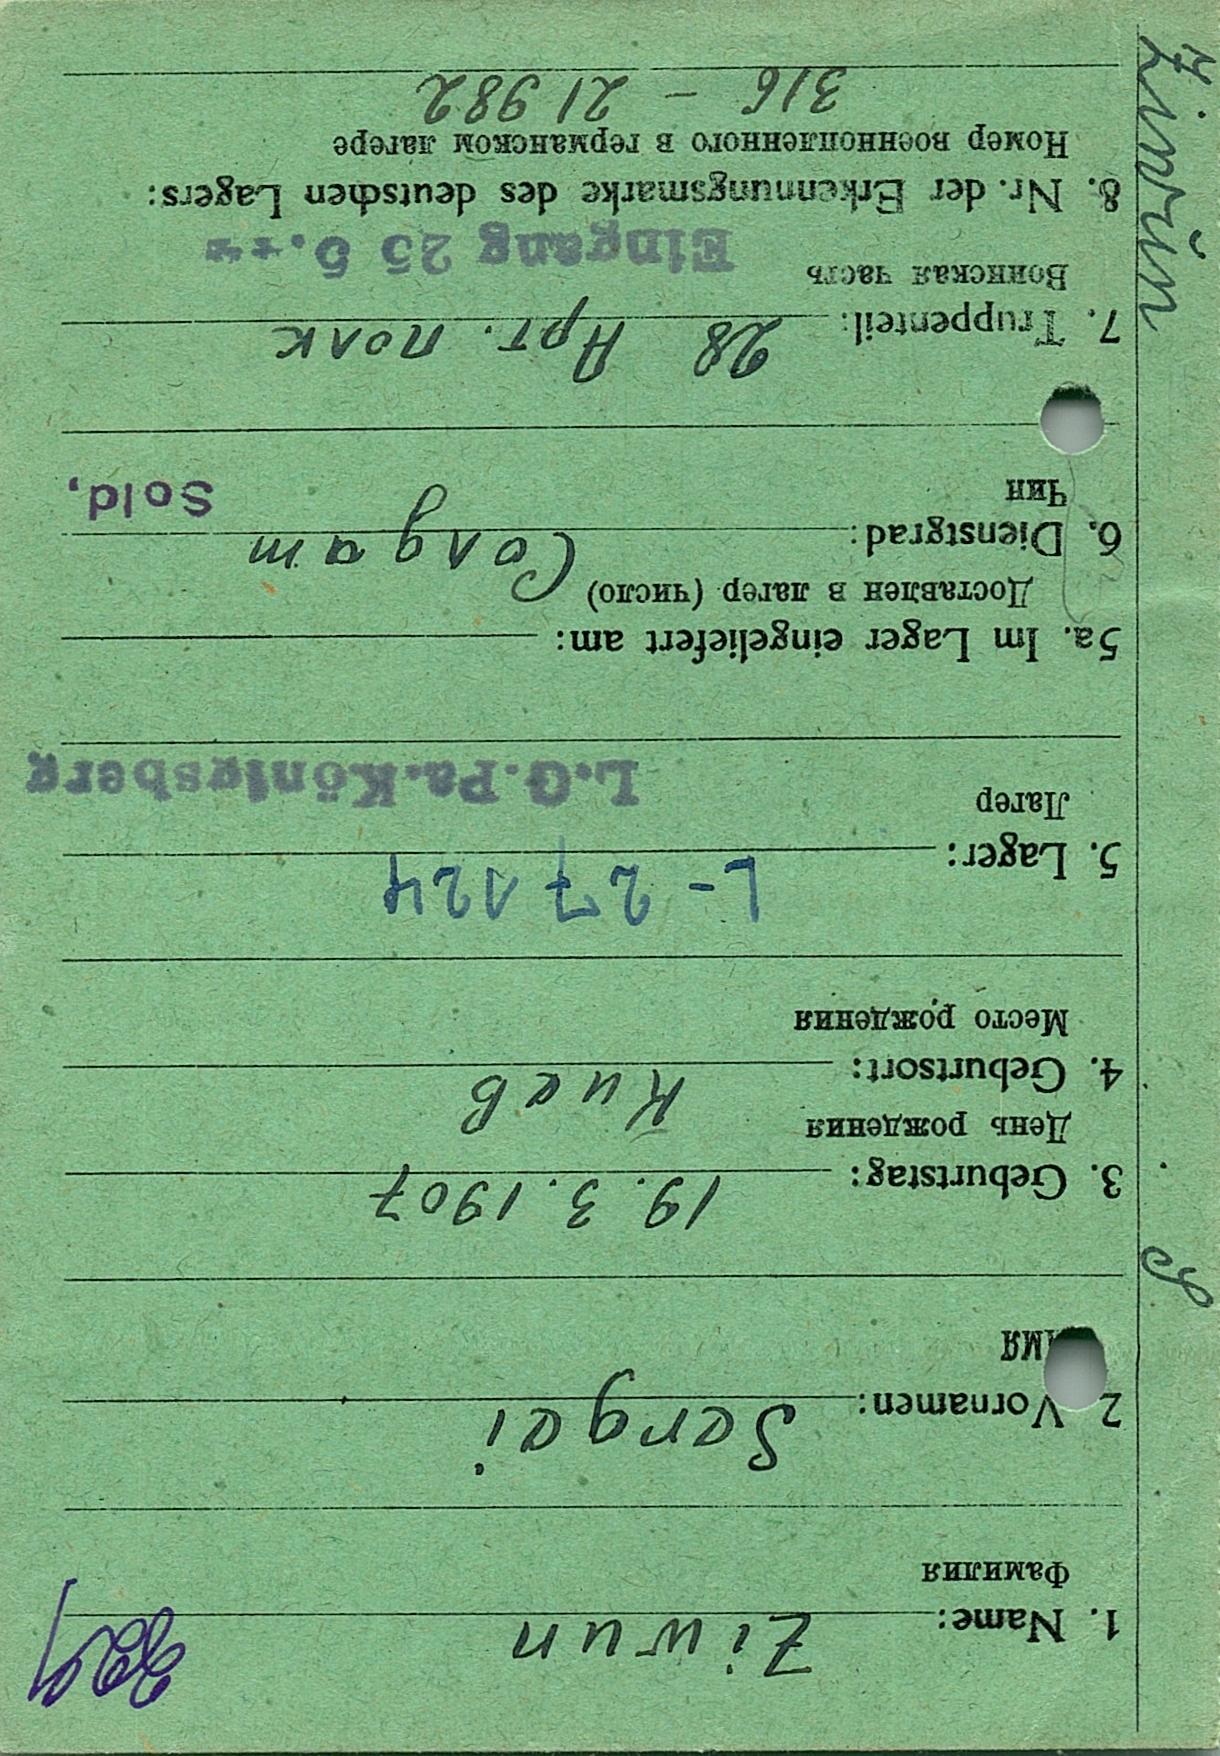 1. Name: Ziwun
Фамилия
2 Vornamen: Sergei
ИМЯ
3. Geburtstag: 19. 3. 1907
День рождения
4. Geburtsort: Киев
Место рождения
5. Lager: L-27124
Лагер
L.G.Pa.Königsberg
5a. Im Lager eingeliefert am:
Доставлен в лагер (число)
6. Dienstgrad: Солдат
Sold,
Чин
7. Truppenteil: 28 Арт. полк
Воинская часть
Eingang 25 6.44
8. Nr. der Erkennungsmarke des deutschen Lagers:
Номер военнопленного в германском лагере
316 - 21982
S